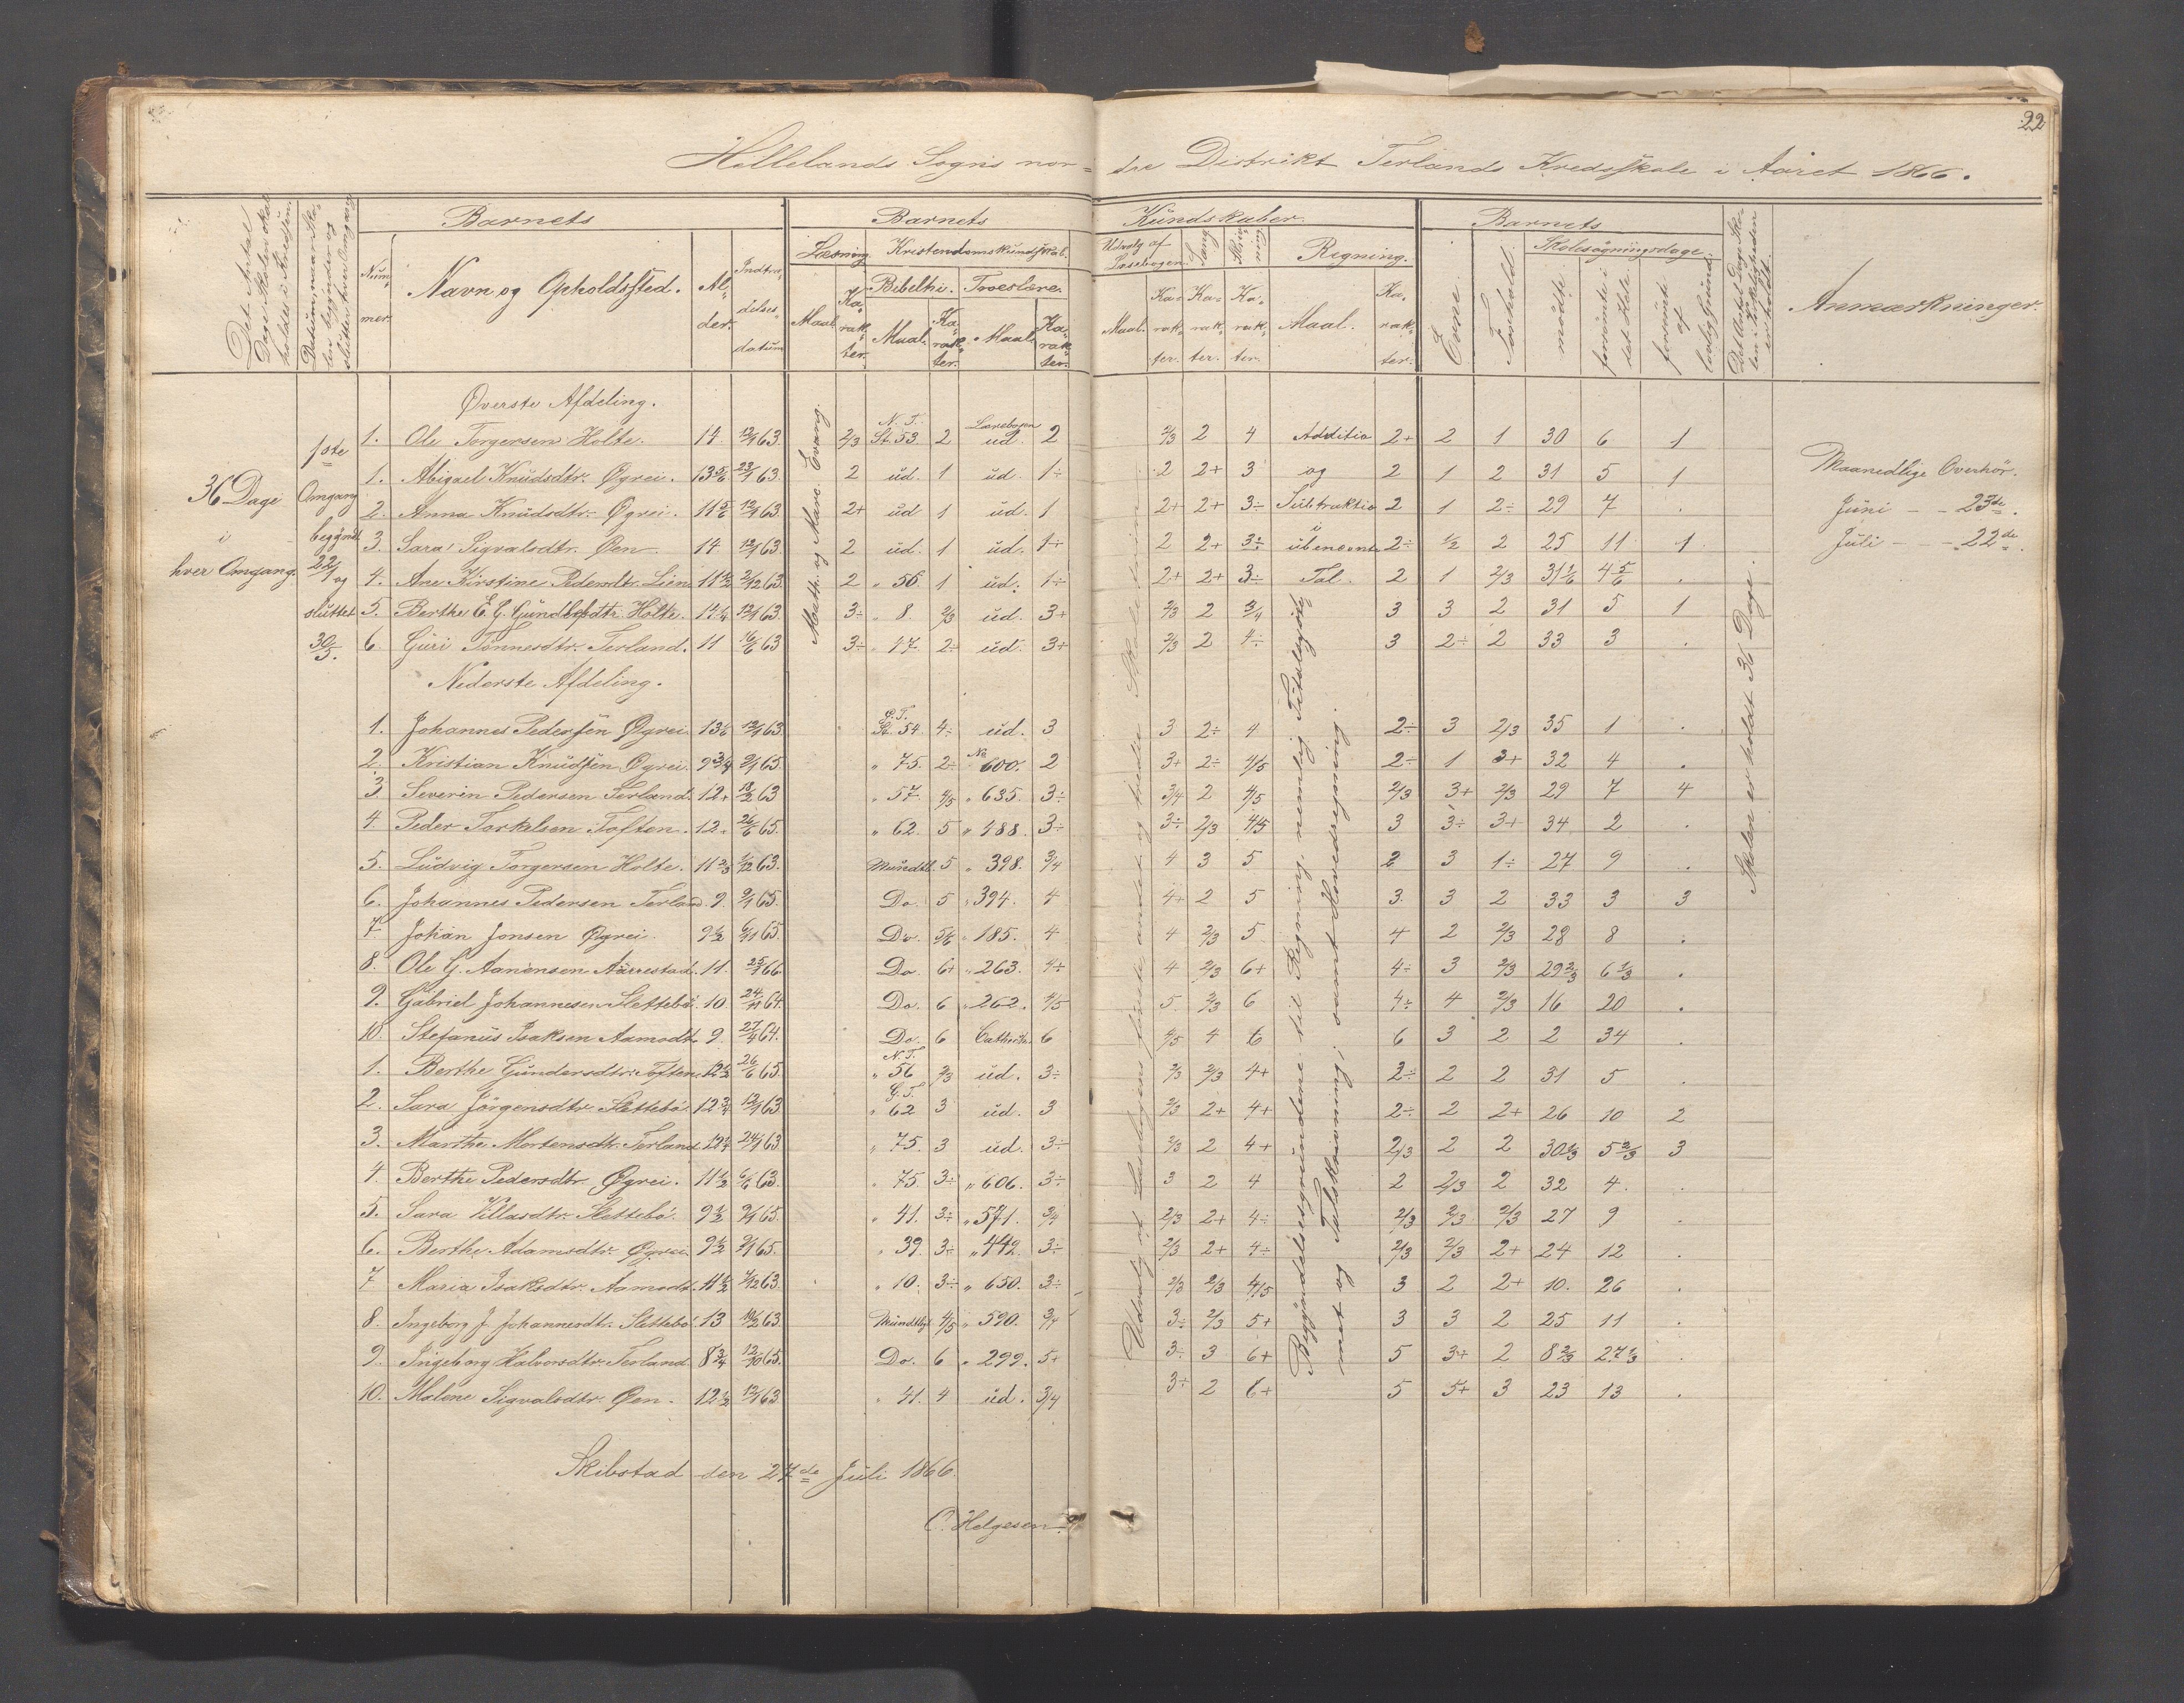 22
Hellelands Sogns nordre Distrikt Terlands Kredsskole i Aaret 1866.
Det Antal Dage Skolen skal holdes i Kredsen.
Datum, naar Skolen begynder og slutter hver Omgang
Barnets
Barnets Kundskaber.
Barnets
Det Antal Dage Skolen i Virkeligheden er holdt.
Anmærkninger.
Nummer.
Navn og Opholdssted.
Alder.
Indtrædelsesdatum
Læsning.
Kristendomskundskab.
Udvalg af Læsebogen.
Sang.
Skrivning.
Regning.
Evne.
Forhold.
Skolesøgningsdage.
Bibelhi. Troeslære.
Maal. Karakter. Maal. Karakter. Maal. Karakter.
Maal. Karakter. Karakter. Karakter. Maal. Karakter.
mødte. forsømte i det Hele. forsømte af lovlig Grund.
36 Dage i hver Omgang.
1ste Omgang begyndt 22/1 og sluttet 30/5.
Math. og Marc. Evang.
Øverste Afdeling.
1. Ole Torgersen Holte. 14 12/1 63. 2/3 N. T. St. 53 2 Lærebogen ud. 2 2/3 2 4 Additio 2+ 2 1 30 6 1
1. Abigael Knudsdtr. Øgrei. 13 5/6 23/1 63. 2 ud. 1 ud. 1÷ 2 2+ 3 og 2 1 2 31 5 1
2. Anna Knudsdtr. Øgrei. 11 5/6 12/1 63. 2+ ud 1 ud. 1 2+ 2+ 3÷ Subtraktio 2 1 2÷ 29 7 .
3. Sara Sigvalsdtr. Øen 14 12/1 63. 2 ud. 1 ud. 1÷ 2 2+ 3÷ i ubenevnte 2÷ 1/2 2 25 11 1
4. Ane Kirstine Pedersdtr. Lien 11 1/2 2/12 63. 2 " 56. 1 ud. 1÷ 2+ 2+ 3÷ Tal. 2 1 2/3 31 1/6 4 5/6 .
5. Berthe E. G. Gundersdtr. Holte. 14 1/4 12/1 63. 3÷ " 8. 2/3 ud. 3+ 2/3 2 3/4 3 3 2 31 5 1
6. Guri Tønnesdtr. Terland. 11 16/6 63 3÷ " 17. 2÷ ud. 3+ 2/3 2 4÷ 3 2÷ 2 33 3 .
Maanedlige Overhør.
Juni - - 23de.
Juli - - - 22de.
Nederste Afdeling.
1. Johannes Pedersen Øgrei. 13 1/2 12/1 63. G. T. St. 54 4÷ ud. 3 3 2÷ 4 2÷ 3 2/3 35 1 .
2. Kristian Knudsen Øgrei. 9 3/4 9/1 65. " 75. 2÷ No 600. 2 3+ 2÷ 4/5 2÷ 1 3+ 32 4 .
3 Severin Pedersen Terland. 12+ 18/2 63 " 57. 4/5 " 635. 3÷ 3/4 2 4/5 2/3 3+ 2/3 29 7 4
4 Peder Torkelsen Toften. 12+ 26/6 65. " 62. 5 " 488. 3÷ 3÷ 2/3 4/5 3 3÷ 3+ 34 2 .
5. Ludvig Torgersen Holte. 11 2/3 2/12 63. Mundtl. 5 " 398. 3/4 4 3 5 2 3 1÷ 27 9 .
6. Johannes Pedersen Terland. 9. 9/1 65. Do. 5 " 394. 4 4+ 2 5 3. 3 2 33 3 3
7. Johan Jonsen Øgrei 9 1/2 6/11 65. Do. 5/6 " 185. 4 4 2/3 5 4 2 2/3 28 8 .
8. Ole G. Aanensen Aarrestad. 11. 25/1 66 Do. 6+ " 263. 4÷ 4 2/3 6+ 4÷ 3 2/3 29 2/3 6 1/3 .
9. Gabriel Johannesen Slettebø. 10. 24/11 64. Do. 6 " 262. 4/5 5 2/3 6 4÷ 4 2/3 16 20 .
10. Stefanus Isaksen Aamodt. 9. 27/4 64. Do. 6 6 4/5 4 6 6 3 2 2 34 .
1. Berthe Gundersdtr. Toften. 12 1/2 26/6 65. N. T. " 56 2/3 ud. 3÷ 2/3 2/3 4+ 2÷ 2 2 31 5 .
2. Sara Jörgensdtr. Slettebø. 12 3/4 12/1 63. G. T. " 62 3 ud. 3 2/3 2+ 4+ 2÷ 2 2+ 26 10 2
3. Marthe Mortensdtr. Terland. 12 1/4 24/1 63 " 75. 3 ud. 3÷ 2/3 2 4+ 2/3 2 2 30 1/3 5 2/3 3
4. Berthe Pedersdtr. Øgrei. 11 1/2 6/6 63. " 75 3÷ " 606. 3÷ 3 2 4 2 2/3 2 32 4. .
5. Sara Villasdtr. Slettebø. 9 1/2 9/1 65. " 41. 3÷ " 571. 3/4 2/3 2+ 4÷ 2/3 2/3 2/3 27 9 .
6. Berthe Adamsdtr. Øgrei 9 1/2 9/1 65. " 39. 3÷ " 442. 3÷ 2/3 2+ 4÷ 2/3 2/3 2+ 24 12 .
7 Maria Isaksdtr. Aamodt. 11 1/2 7/12 63. " 10. 3÷ " 650. 3÷ 2/3 2/3 4/5 3 2 2+ 10. 26 .
8. Ingeborg J. Johannesdtr. Slettebø. 13 10/2 63. Mundtligt 4/5 " 590. 3/4 3÷ 2/3 5+ 3 3 2 25 11 .
9. Ingeborg Halvorsdtr. Terland. 8 3/4 12/10 65. Do. 6 " 299. 5+ 3÷ 3 6+ 5 3+ 2 8 2/3 27 1/3 .
10. Malene Sigvalsdtr. Øen. 12 1/2 12/1 63. " 41. 4 ud. 3/4 3÷ 2 6+ 5 5+ 3 23 13 .
Udvalg af Læsebogens første, andet og tredie Skoletrin
Begyndelsesgrundene til Regning, nemlig Titalsystemet og Talskrivning; samt Hovedregning.
Skolen er holdt 36 Dage.
Skibstad den 27de Juli 1866.
C. Helgesen.